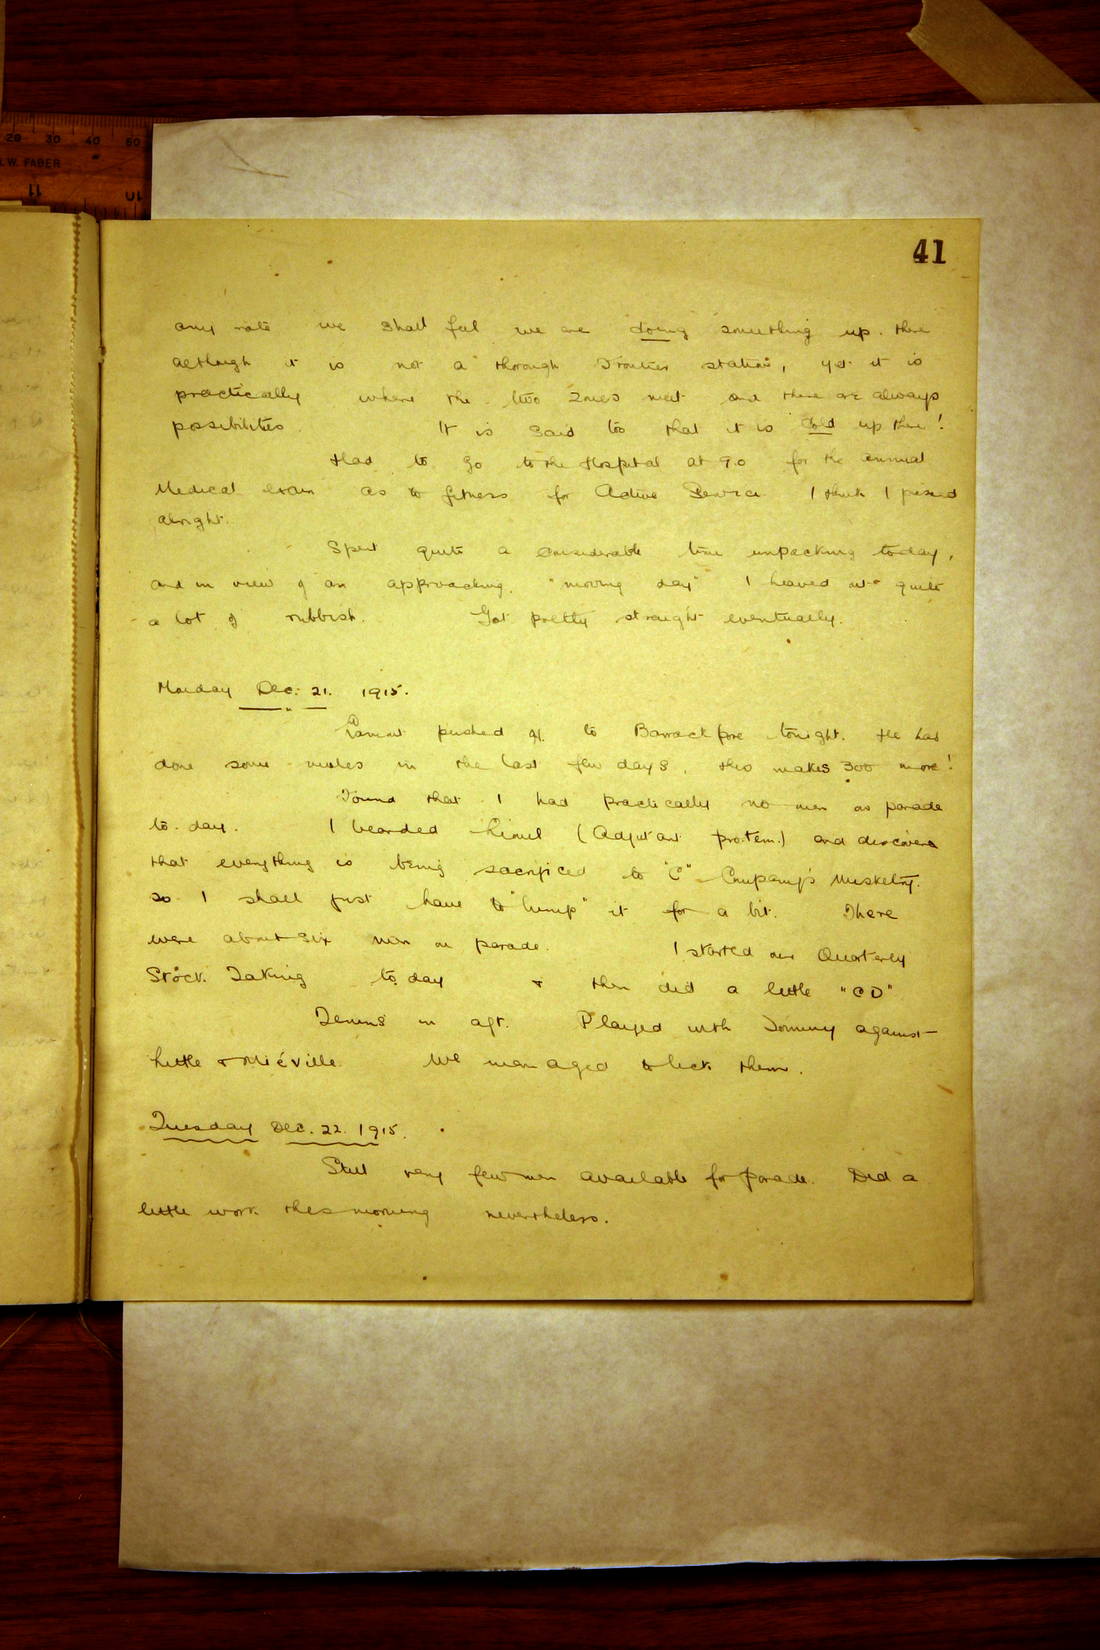 20 30 40 50
W. FABER
11 10
41
any rate we shall feel we are doing something up there
although it is not a thorough Frontier station, yet it is
practically where the two zones meet and there are always
possibilities. It is said too that it is cold up there!
Had to go to the Hospital at 9.0 for the annual
Medical exam as to fitness for Active Service I think I passed
alright.
Spent quite a considerable time unpacking today,
and in view of an approaching "moving day" I heaved out quite
a lot of rubbish. Got pretty straight eventually.
Monday Dec. 21. 1915.
pushed off to Barrackpore tonight. He has
done some miles in the last few days, this makes 300 more!
Found that I had practically no men on parade
to-day. I bearded (Adjutant pro.tem.) and discovered
that everything is being sacrificed to "C" Company's Musketry.
so I shall just have to "lump" it for a bit. There
were about six men on parade. I started our Quarterly
Stock Taking to day & then did a little "CD"
Tennis in aft. Played with Tommy against
Little & Miéville. We managed to lick them.
Tuesday Dec. 22. 1915.
Still very few men available for parade. Did a
little work this morning nevertheless.